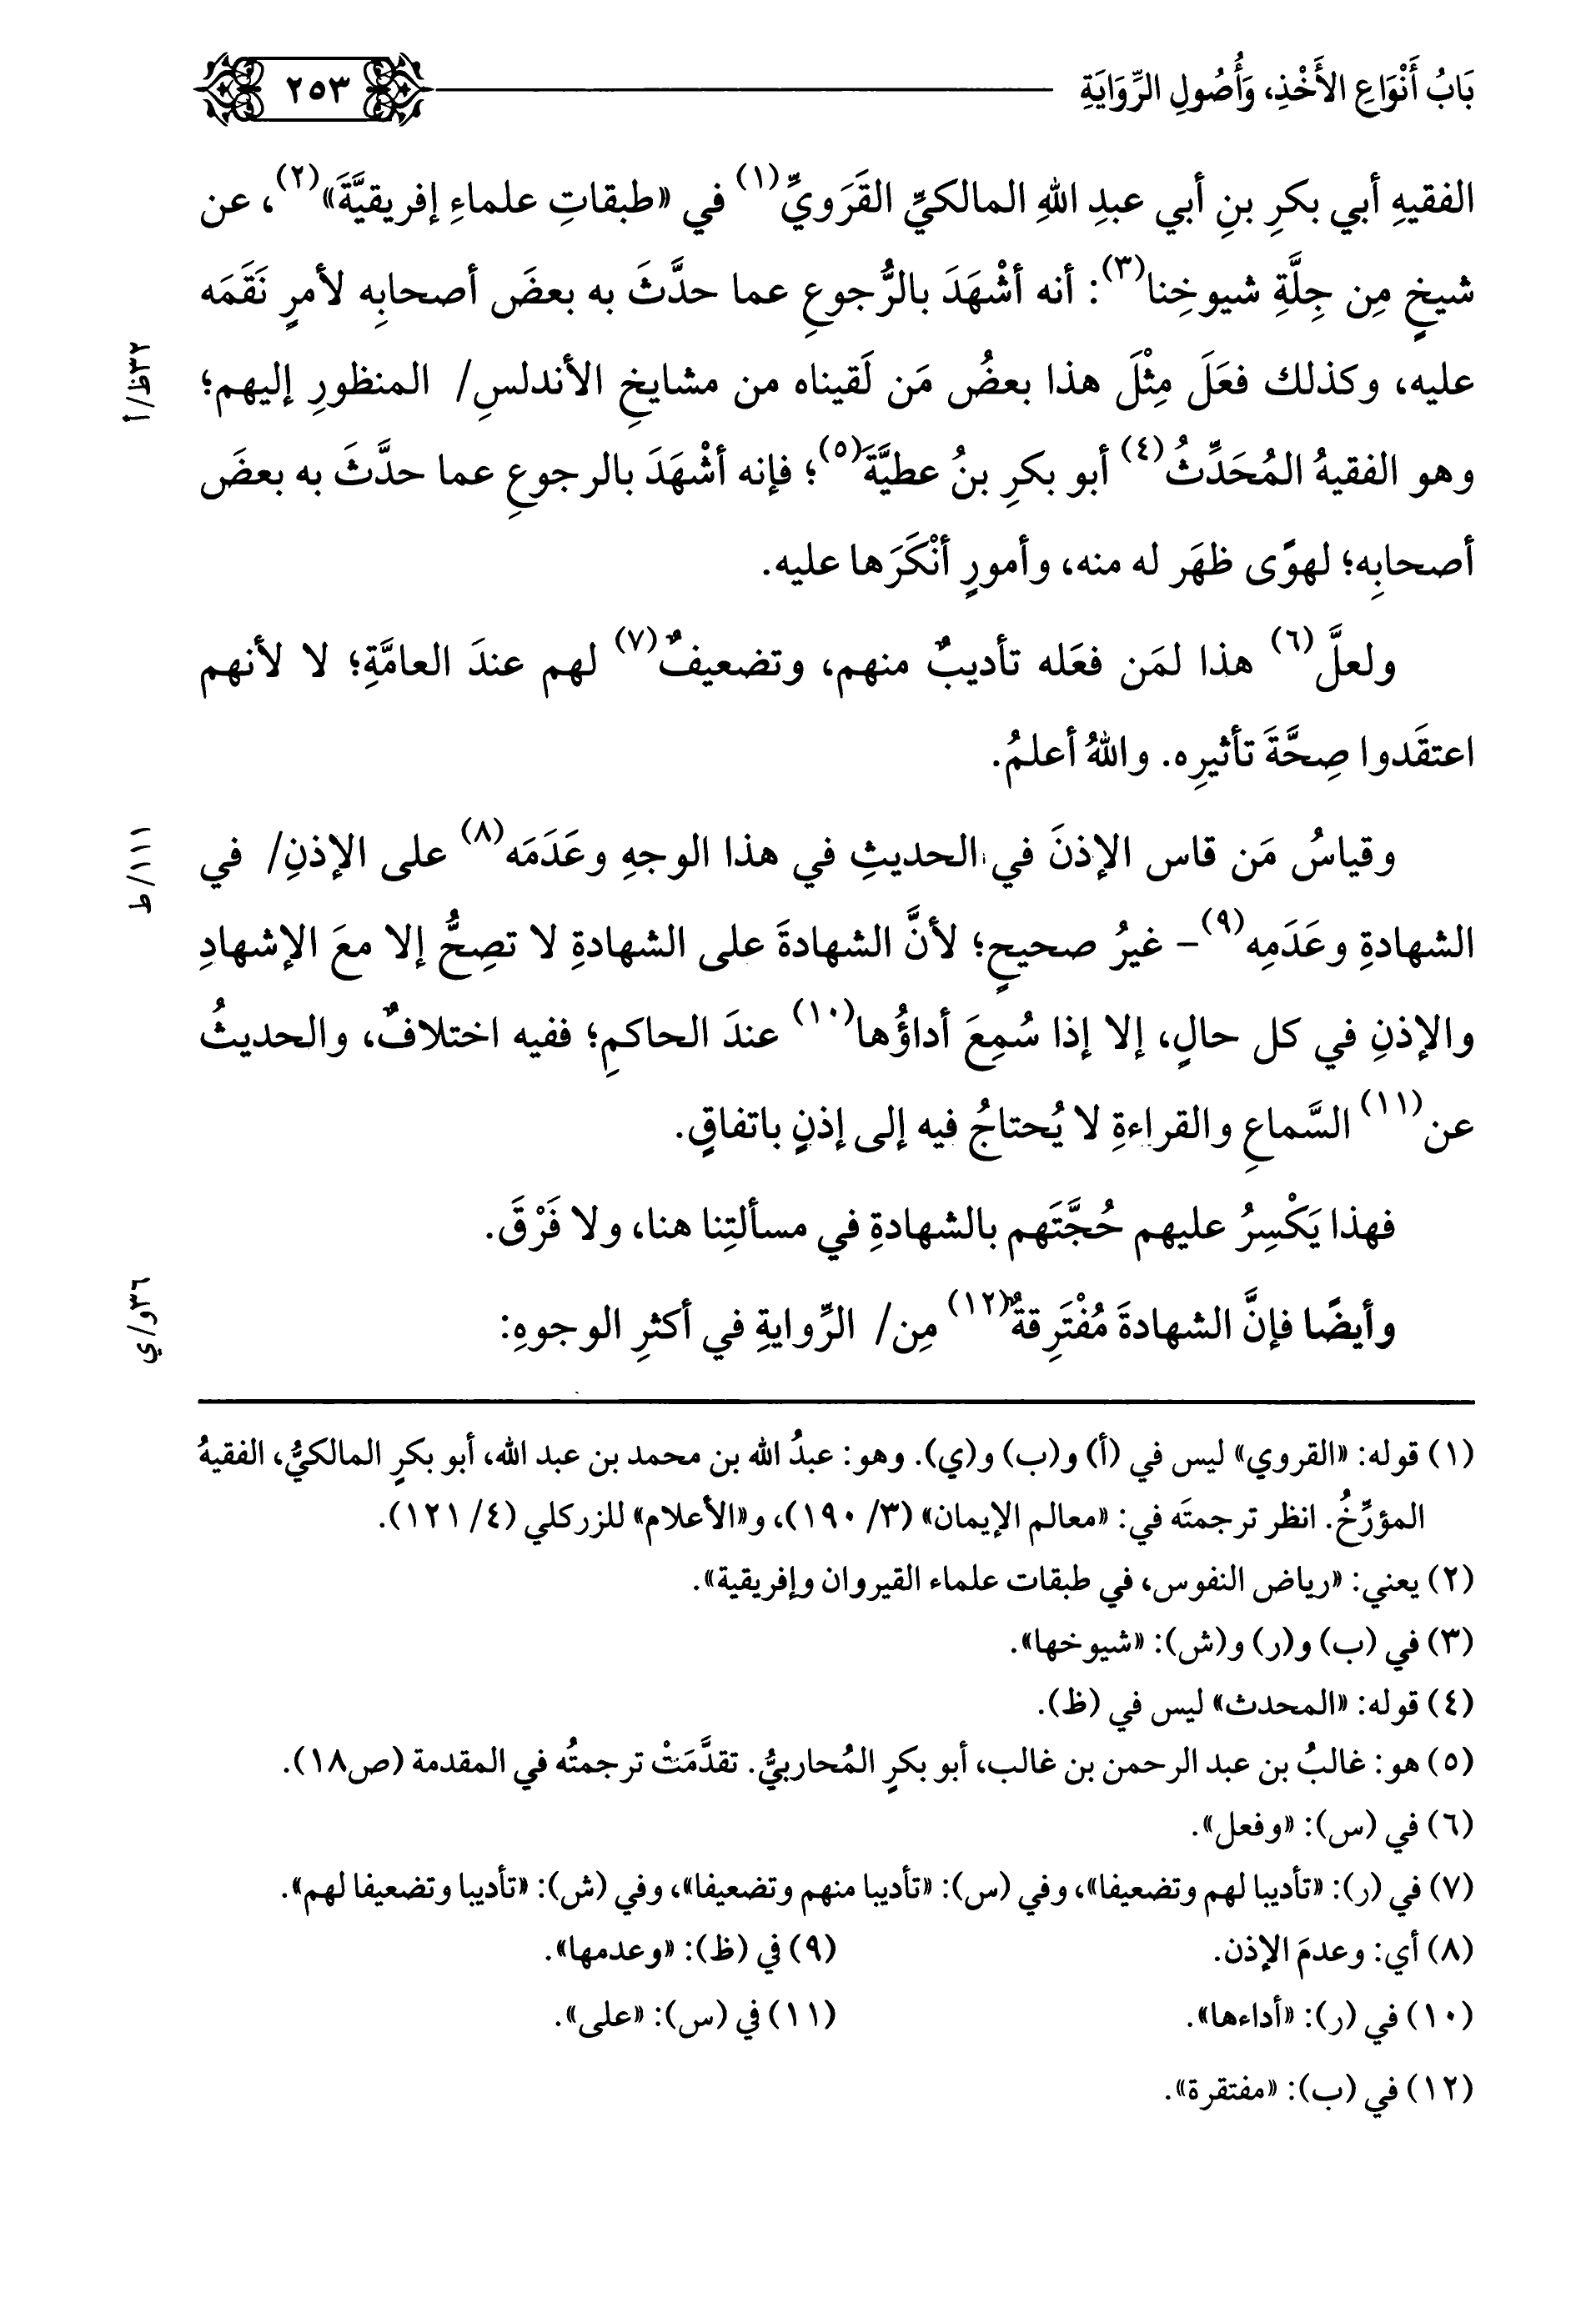 بَابُ أَنْوَاعِ الأَخْذِ، وَأُصُولِ الرِّوَايَةِ ٢٥٣
الفقيهِ أبي بكرِ بنِ أبي عبدِ اللهِ المالكيِّ القَرَويِّ(١) في «طبقاتِ علماءِ إفريقيَّةَ»(٢)، عن
شيخٍ مِن جِلَّةِ شيوخِنا(٣): أنه أشْهَدَ بالرُّجوعِ عما حدَّثَ به بعضَ أصحابِه لأمرٍ نَقَمَه
عليه، وكذلك فعَلَ مِثْلَ هذا بعضُ مَن لَقيناه من مشايخِ الأندلسِ/ المنظورِ إليهم؛
٣٢ظ/أ
وهو الفقيهُ المُحَدِّثُ(٤) أبو بكرِ بنُ عطيَّةَ(٥)؛ فإنه أشْهَدَ بالرجوعِ عما حدَّثَ به بعضَ
أصحابِه؛ لهوًى ظهَر له منه، وأمورٍ أنْكَرَها عليه.
ولعلَّ(٦) هذا لمَن فعَله تأديبٌ منهم، وتضعيفٌ(٧) لهم عندَ العامَّةِ؛ لا لأنهم
اعتقَدوا صِحَّةَ تأثيرِه. واللهُ أعلمُ.
وقياسُ مَن قاس الإذنَ في الحديثِ في هذا الوجهِ وعَدَمَه(٨) على الإذنِ/ في
١١١/ط
الشهادةِ وعَدَمِه(٩)- غيرُ صحيحٍ؛ لأنَّ الشهادةَ على الشهادةِ لا تصِحُّ إلا معَ الإشهادِ
والإذنِ في كل حالٍ، إلا إذا سُمِعَ أداؤُها(١٠) عندَ الحاكمِ؛ ففيه اختلافٌ، والحديثُ
عن(١١) السَّماعِ والقراءةِ لا يُحتاجُ فيه إلى إذنٍ باتفاقٍ.
فهذا يَكْسِرُ عليهم حُجَّتَهم بالشهادةِ في مسألتِنا هنا، ولا فَرْقَ.
وأيضًا فإنَّ الشهادةَ مُفْتَرِقةٌ(١٢) مِن/ الرِّوايةِ في أكثرِ الوجوهِ:
٣٦و/ي
(١) قوله: «القروي» ليس في (أ) و(ب) و(ي). وهو: عبدُ الله بن محمد بن عبد الله، أبو بكرٍ المالكيُّ، الفقيهُ
المؤرِّخُ. انظر ترجمتَه في: «معالم الإيمان» (٣/ ١٩٠)، و«الأعلام» للزركلي (٤/ ١٢١).
(٢) يعني: «رياض النفوس، في طبقات علماء القيروان وإفريقية».
(٣) في (ب) و(ر) و(ش): «شيوخها».
(٤) قوله: «المحدث» ليس في (ظ).
(٥) هو: غالبُ بن عبد الرحمن بن غالب، أبو بكرٍ المُحاربيُّ. تقدَّمَتْ ترجمتُه في المقدمة (ص١٨).
(٦) في (س): «وفعل».
(٧) في (ر): «تأديبا لهم وتضعيفا»، وفي (س): «تأديبا منهم وتضعيفا»، وفي (ش): «تأديبا وتضعيفا لهم».
(٨) أي: وعدمَ الإذن. (٩) في (ظ): «وعدمها».
(١٠) في (ر): «أداءها». (١١) في (س): «على».
(١٢) في (ب): «مفتقرة».